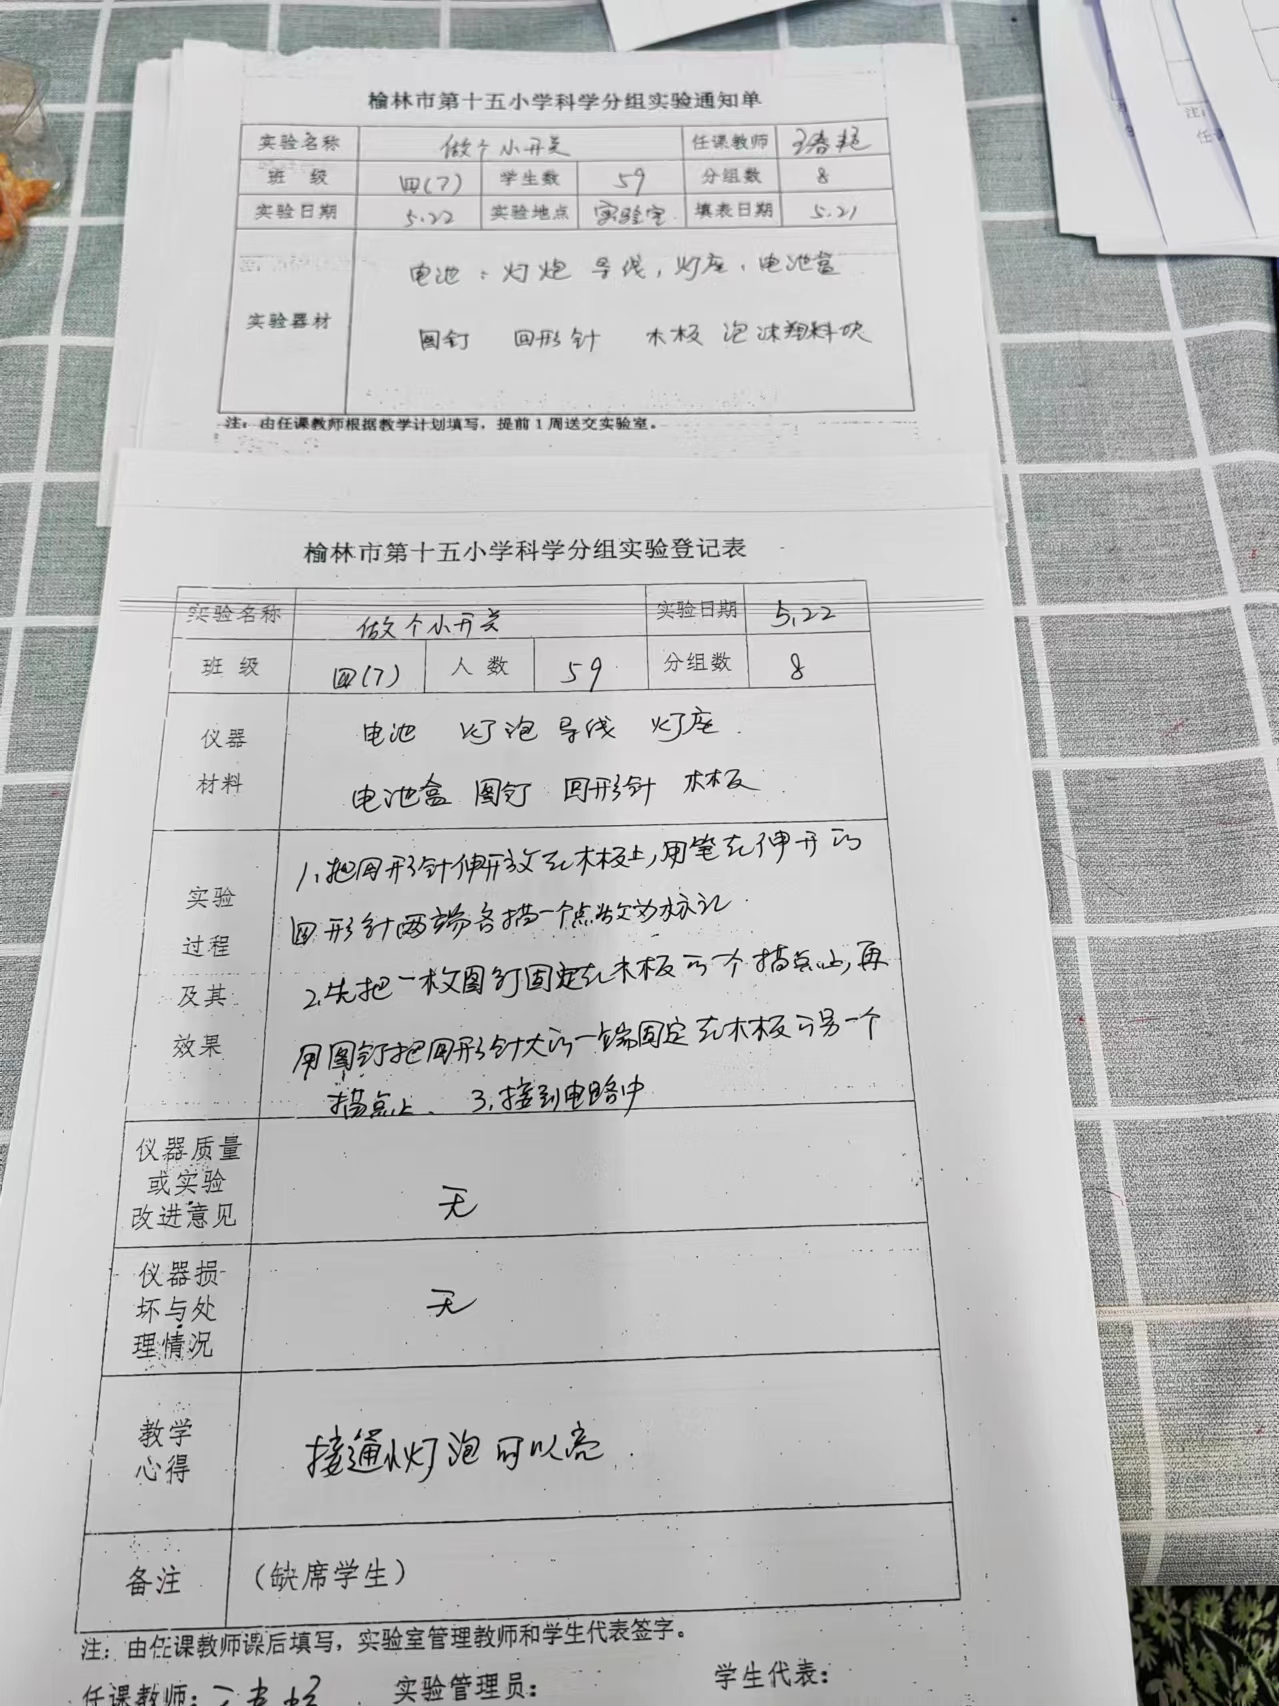 榆林市第十五小学科学分组实验通知单
实验名称 做个小开关 任课教师
班 级 四(7) 学生数 59 分组数 8
实验日期 5.22 实验地点 实验室 填表日期 5.21
电池 灯炮 导线,灯座、电池盒
实验器材
图钉 回形针 木板 泡沫塑料块
注:由任课教师根据教学计划填写,提前1周送交实验室。
榆林市第十五小学科学分组实验登记表
实验名称 做个小开关 实验日期 5.22
班 级 四(7) 人 数 59 分组数 8
仪器 电池 灯泡 导线 灯座
材料 电池盒 图钉 回形针 木板
实验 1.把回形针伸开放在木板上,用笔在伸开的
过程 回形针两端各描一个点做为标记.
及其 2.先把一枚图钉固定在木板的一个描点上,再
效果 用图钉把回形针大的一端固定在木板的另一个
描点上. 3.接到电路中
仪器质量
或实验
改进意见 无
仪器损
坏与处 无
理情况
教学
心得 接通小灯泡可以亮.
备注 (缺席学生)
注:由任课教师课后填写,实验室管理教师和学生代表签字。
任课教师: 实验管理员: 学生代表: